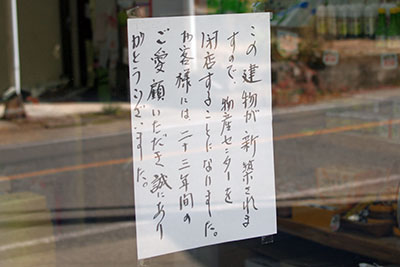 この建物が新築されま
すので、物産センターを
閉店することになりました。
お客様には、二十三年間の
ご愛顧いただき誠にあり
がとうございました。